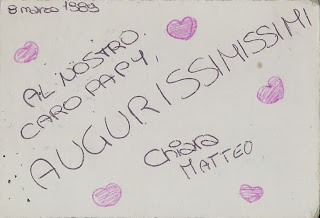 8 marzo 1989
AL NOSTRO
CARO PAPY,
AUGURISSIMISSIMI
Chiara
MATTEO